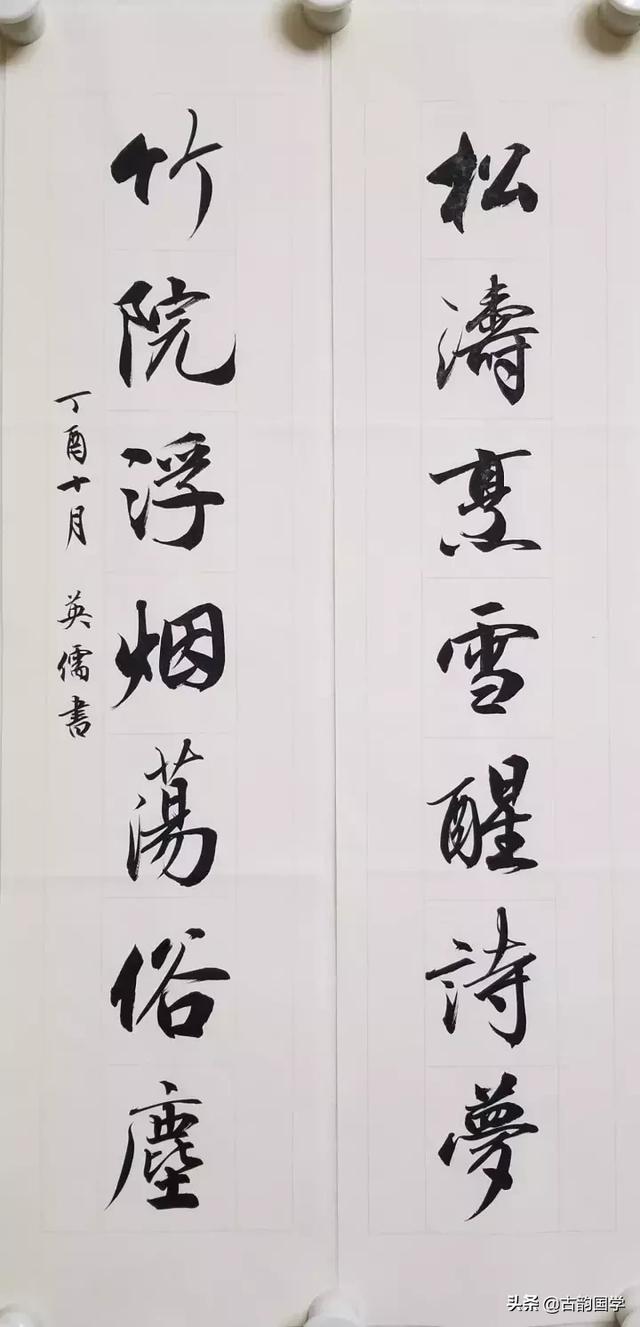 松濤烹雪醒詩夢
竹院浮烟蕩俗塵
丁酉十月 英儒書
头条 @古韵国学